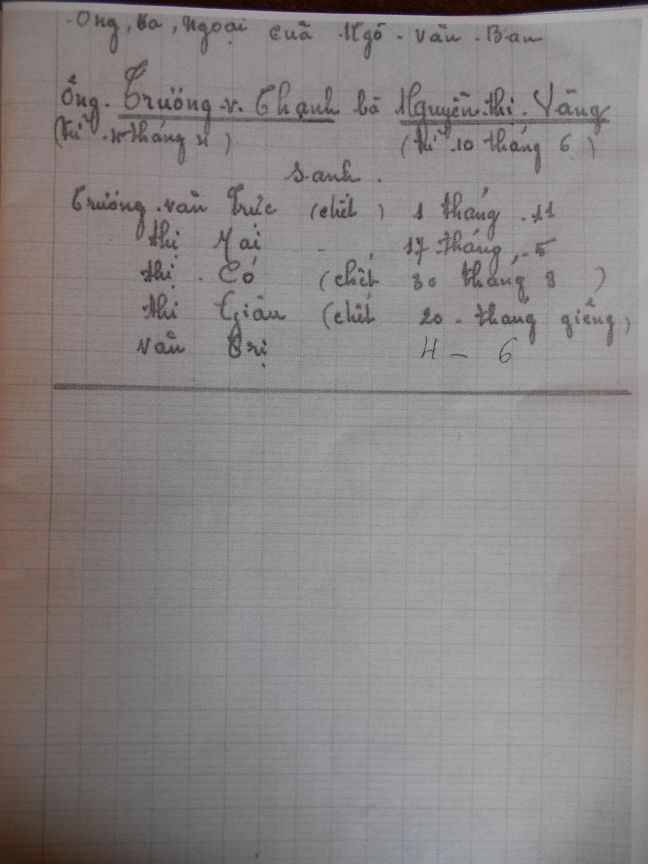 Ông, Ba, Ngoại cuả Ngô - văn - Ban
Ông. Trương. v. Thạnh bà Nguyễn. thị. Vàng
tháng ) (tử 10 tháng 6 )
sanh.
Trương. văn Trực (chết ) 1 tháng. 11
thị Mai - , 17 tháng - 5
thị. Có (chết 30 tháng 8 )
thị Giàu (chết 20 - tháng giêng,
văn Trị 4 - 6